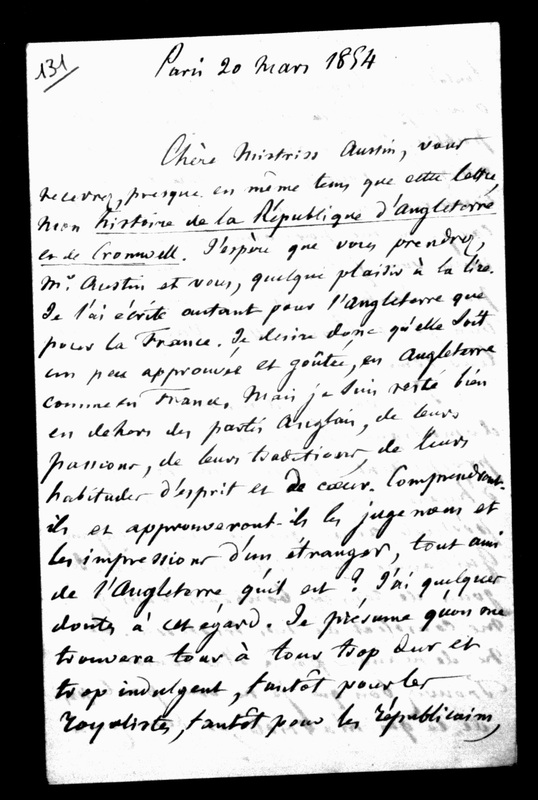 131
Paris 20 Mars 1854
Chère Mistriss Austin, vous
recevrez, presque en même tems que cette lettre,
mon histoire de la République d'Angleterre
et de Cromwell. J'espère que vous prendrez,
Mr. Austin et vous, quelque plaisir à la lire.
Je l'ai écrite autant pour l'Angleterre que
pour la France. Je désire donc qu'elle soit
un peu approuvée et goûtée, en Angleterre
comme en France. Mais je suis resté bien
en dehors des partis Anglais, de leurs
passions, de leurs traditions, de leurs
habitudes d'esprit et de cœur. Comprendront-
ils et approuveront-ils les jugemens et
les impressions d'un étranger, tout ami
de l'Angleterre qu'il est ? J'ai quelques
doutes à cet égard. Je présume qu'on me
trouvera tour à tour trop dur et
trop indulgent, tantôt pour les
royalistes, tantôt pour les républicains,